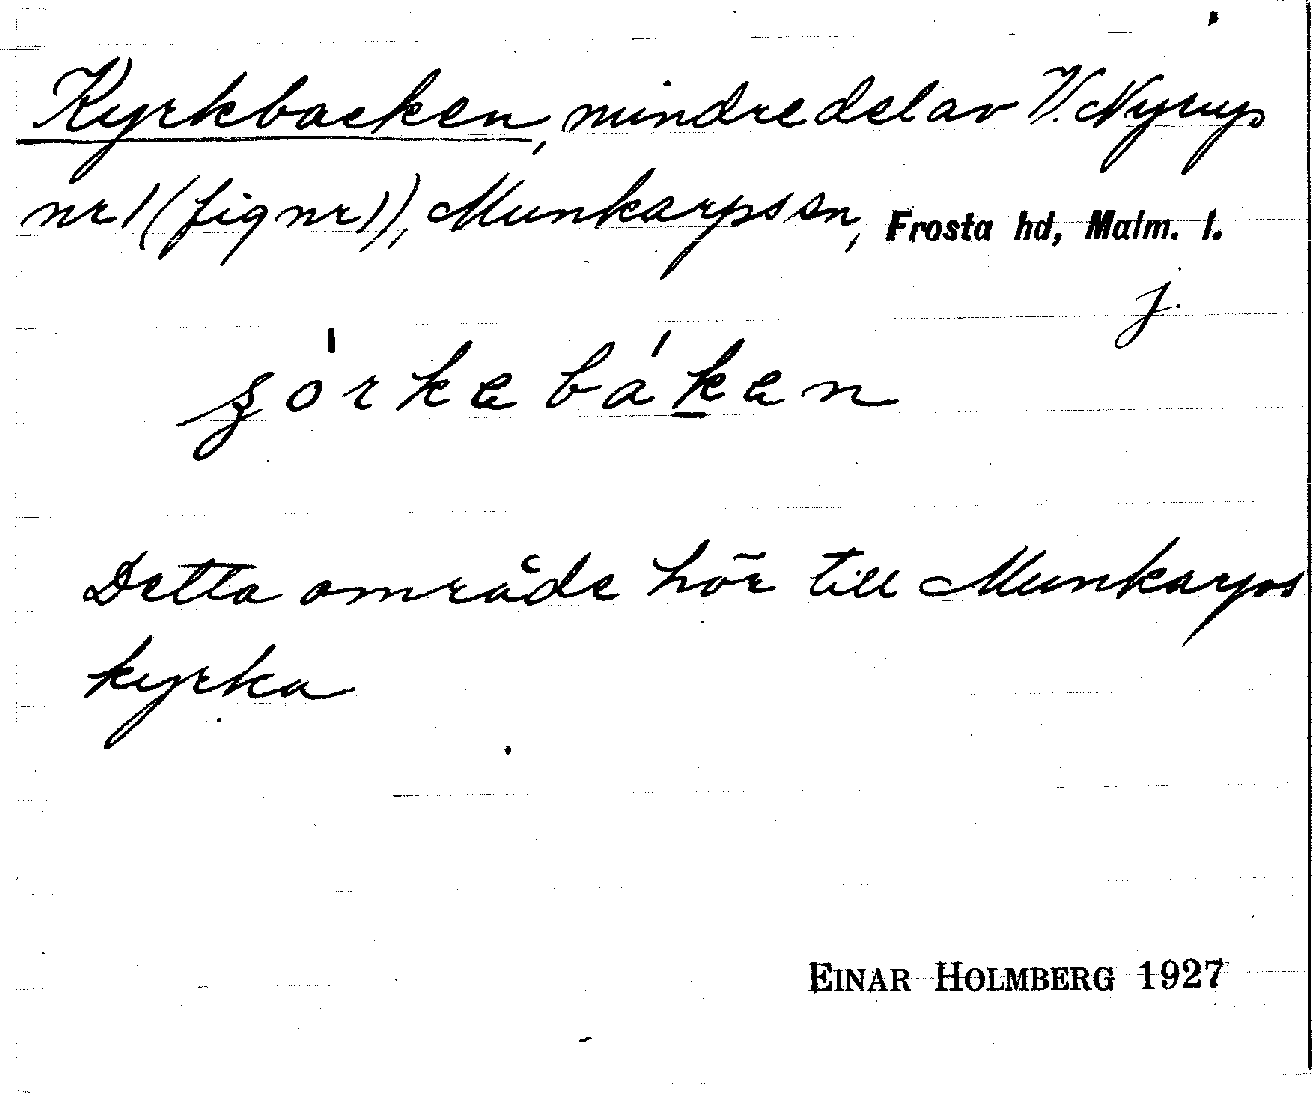 Kyrkbacken, mindre del av V. Nyrup
nr 1 (fig nr 1), Munkarps sn, Frosta hd, Malm. l.
j.
Detta område hör till Munkarps
kyrka
EINAR HOLMBERG 1927